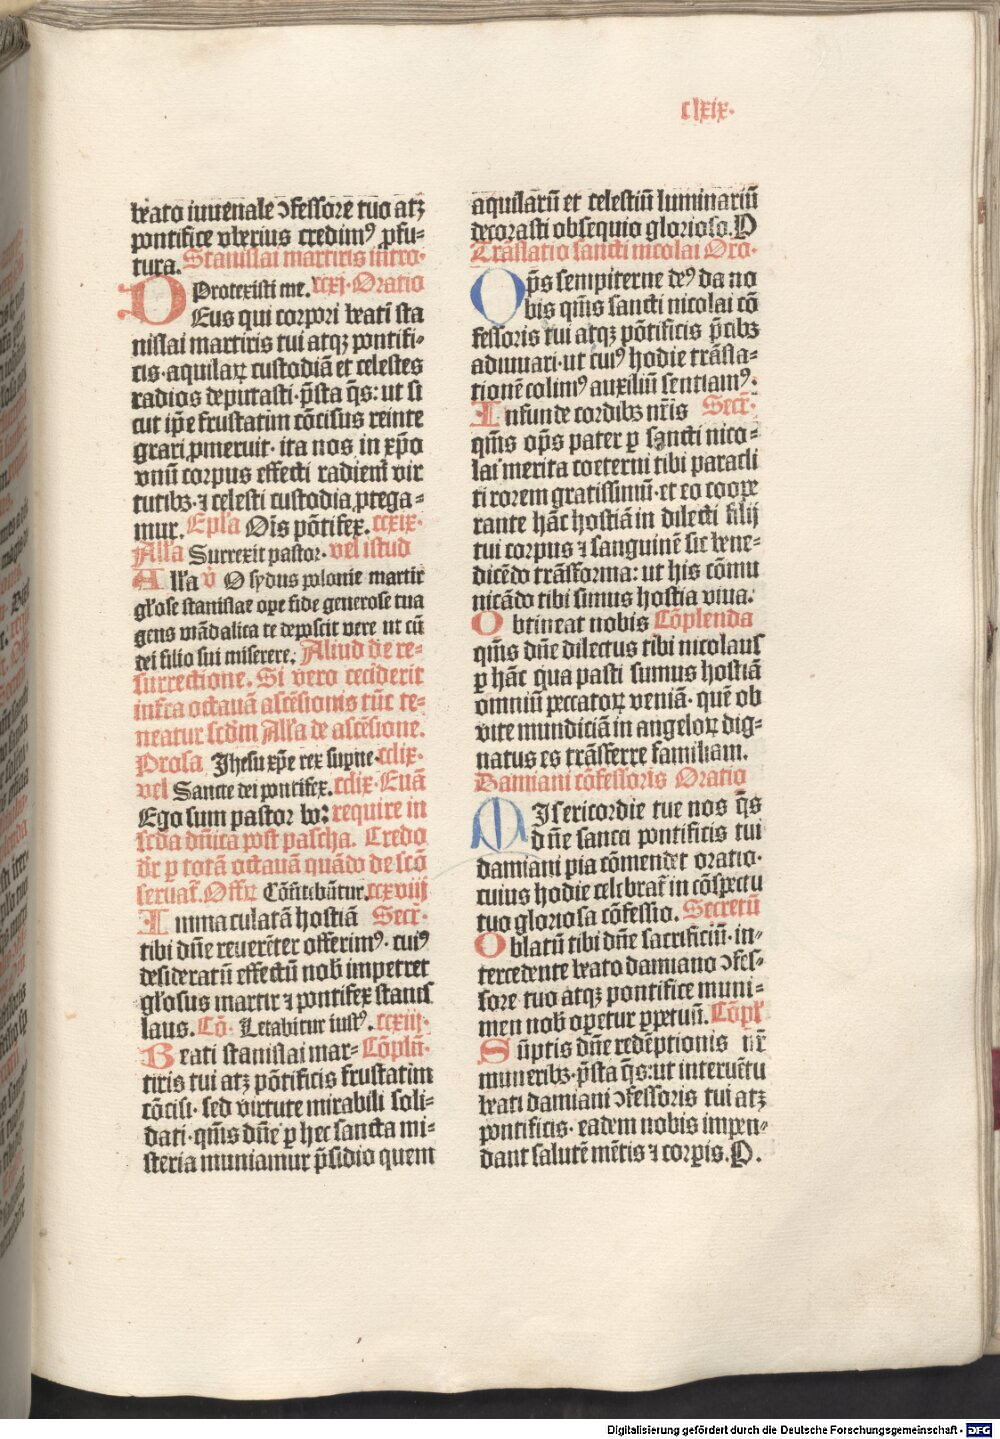 clxix.
beato iuuenale ɔfessore tuo atꝫ
pontifice vberius credim⁹ ꝓfu-
tura. Stanislai martiris intro-
Protexisti me. ccxj. Oratio
DEus qui corpori beati sta
nislai martiris tui atqꝫ pontifi-
cis. aquilaꝝ custodiā et celestes
radios deputasti. p̄sta q̄s: ut si
cut ip̄e frustatim cōcisus reinte
grari ꝓmeruit. ita nos in xp̄o
vnū corpus effecti radient̄ vir
tutibꝫ. ⁊ celesti custodia ꝓtega-
mur. Ep̄la Om̄s pōtifex. ccxix.
All'a Surrexit pastor. vel istud
All'a v̄ O sydus polonie martir
gl'ose stanislae ope fide generose tua
gens wādalica te deposcit vere ut cū
dei filio sui miserere. Aliud de re-
surrectione. Si vero ceciderit
infra octauā ascēsionis tūc te-
neatur scd̄m All'a de ascēsione.
Prosa Jhesu xp̄e rex sup̄ne. cclix.
vel Sancte dei pontifex. cclix. Euā
Ego sum pastor bo: require in
scd̄a dn̄ica post pascha. Credo
dr̄ p totā octauā quādo de scō
seruat̄. Offr̄ Cōfitebūtur. ccxviij
Immaculatā hostiā Secr̄.
tibi dn̄e reuerēter offerim⁹. cui⁹
desideratū effectū nob̄ impetret
gl'osus martir ⁊ pontifex stanis
laus. Cō. Letabitur iust⁹. ccxiij.
Beati stanislai mar- Cōplīt.
tiris tui atꝫ pōtificis frustatim
cōcisi. sed virtute mirabili soli-
dati. qm̄s dn̄e p hec sancta mi-
steria muniamur p̄sidio quem
aquilarū et celestiū luminariū
decorasti obsequio glorioso. P
Trāslatio sancti nicolai Oro.
Op̄s sempiterne de⁹ da no
bis qm̄s sancti nicolai cō
fessoris tui atqꝫ pōtificis p̄cibꝫ
adiuuari. ut cui⁹ hodie trāsla-
tionē colim⁹ auxiliū sentiam⁹.
Infunde cordibꝫ nr̄is Secr̄.
qm̄s op̄s pater p sancti nico-
lai merita coeterni tibi paracli
ti rorem gratissimū. et eo coope
rante hāc hostiā in dilecti filij
tui corpus ⁊ sanguinē sic bene-
dicēdo trāsforma: ut his cōmu
nicādo tibi simus hostia viua.
Obtineat nobis Cōplenda
qm̄s dn̄e dilectus tibi nicolaus
p hāc qua pasti sumus hostiā
omniū peccatoꝝ veniā. quē ob
vite mundiciā in angeloꝝ dig-
natus es trāsferre familiam.
Damiani cōfessoris Oratio
MIsericordie tue nos q̄s
dn̄e sancti pontificis tui
damiani pia cōmendet oratio.
cuius hodie celebrat̄ in cōspectu
tuo gloriosa cōfessio. Secretū
Oblatū tibi dn̄e sacrificiū. in-
tercedente beato damiano ɔfes-
sore tuo atqꝫ pontifice muni-
men nob̄ opetur ppetuū. Cōpl'
Sūptis dn̄e redēptionis nr̄
muneribꝫ. p̄sta q̄s: ut interuētu
beati damiani ɔfessoris tui atꝫ
pontificis. eadem nobis impen-
dant salutē mētis ⁊ corpis. P.
Digitalisierung gefördert durch die Deutsche Forschungsgemeinschaft - DFG